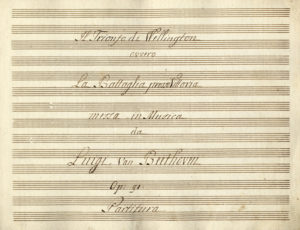 Il Trionfo de Wellington
ovvero
La Battaglia presso Vittoria
messa in Musica
da
Luigi Van Bethovm
Op: 91
Partitura